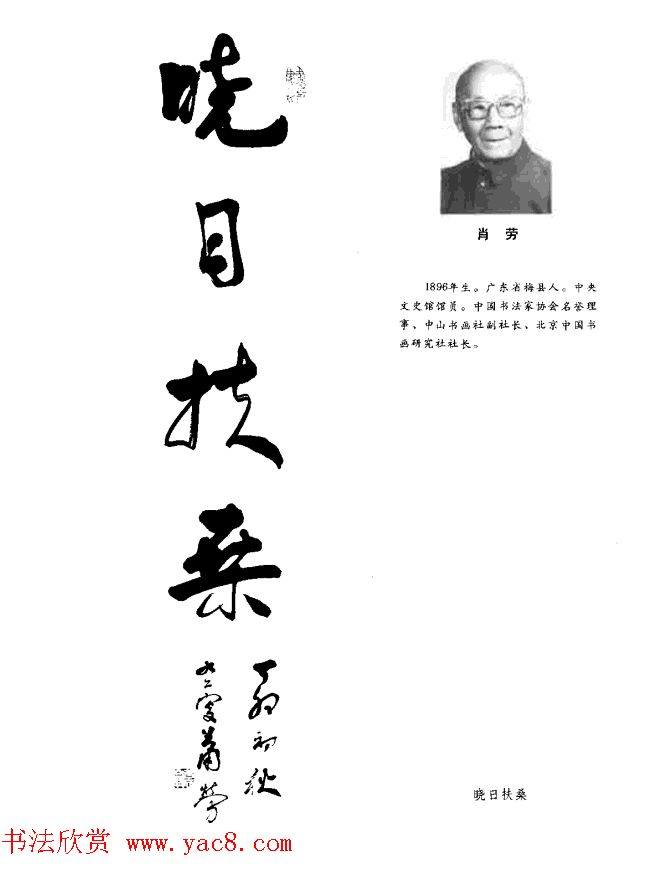 晓日扶桑
丁卯初秋
九二叟萧劳
肖 劳
1896年生。广东省梅县人。中央
文史馆馆员。中国书法家协会名誉理
事、中山书画社副社长、北京中国书
画研究社社长。
晓日扶桑
书法欣赏 www.yac8.com